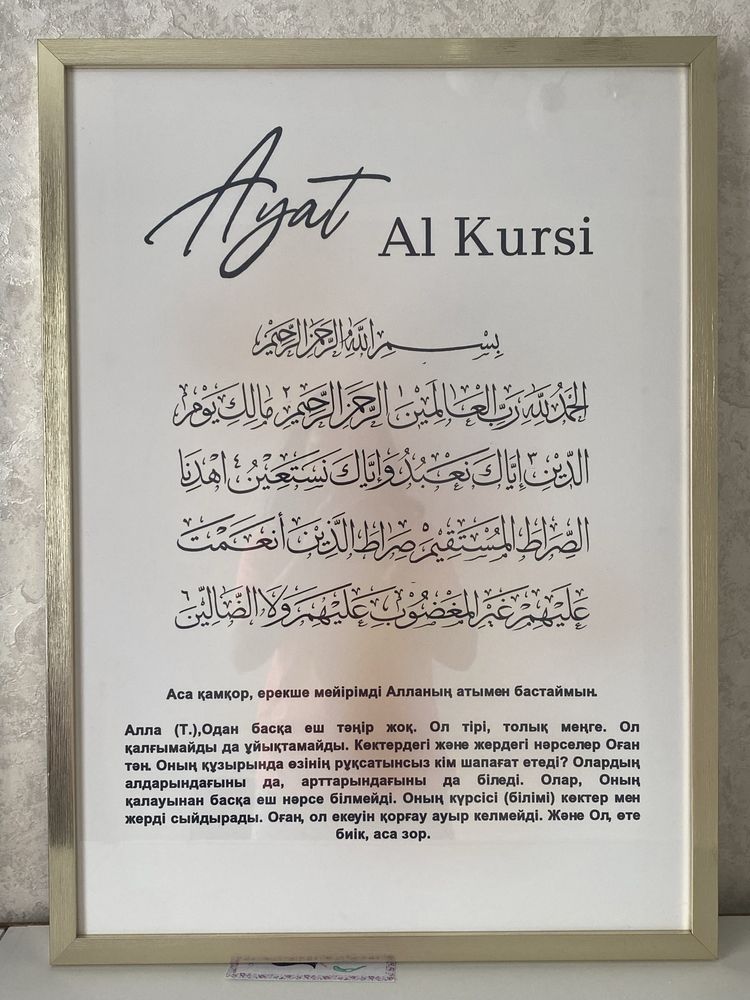 Ayat Al Kursi
بِسْمِ اللَّهِ الرَّحْمَٰنِ الرَّحِيمِ
الْحَمْدُ لِلَّهِ رَبِّ الْعَالَمِينَ الرَّحْمَٰنِ الرَّحِيمِ ٢ مَالِكِ يَوْمِ
الدِّينِ ٣ إِيَّاكَ نَعْبُدُ وَإِيَّاكَ نَسْتَعِينُ ٤ اهْدِنَا
الصِّرَاطَ الْمُسْتَقِيمَ صِرَاطَ الَّذِينَ أَنْعَمْتَ
عَلَيْهِمْ غَيْرِ الْمَغْضُوبِ عَلَيْهِمْ وَلَا الضَّالِّينَ ٦
Аса қамқор, ерекше мейірімді Алланың атымен бастаймын.
Алла (Т.),Одан басқа еш тәңір жоқ. Ол тірі, толық меңге. Ол
қалғымайды да ұйықтамайды. Көктердегі және жердегі нәрселер Оған
тән. Оның құзырында өзінің рұқсатынсыз кім шапағат етеді? Олардың
алдарындағыны да, арттарындағыны да біледі. Олар, Оның
қалауынан басқа еш нәрсе білмейді. Оның күрсісі (білімі) көктер мен
жерді сыйдырады. Оған, ол екеуін қорғау ауыр келмейді. Және Ол, өте
биік, аса зор.